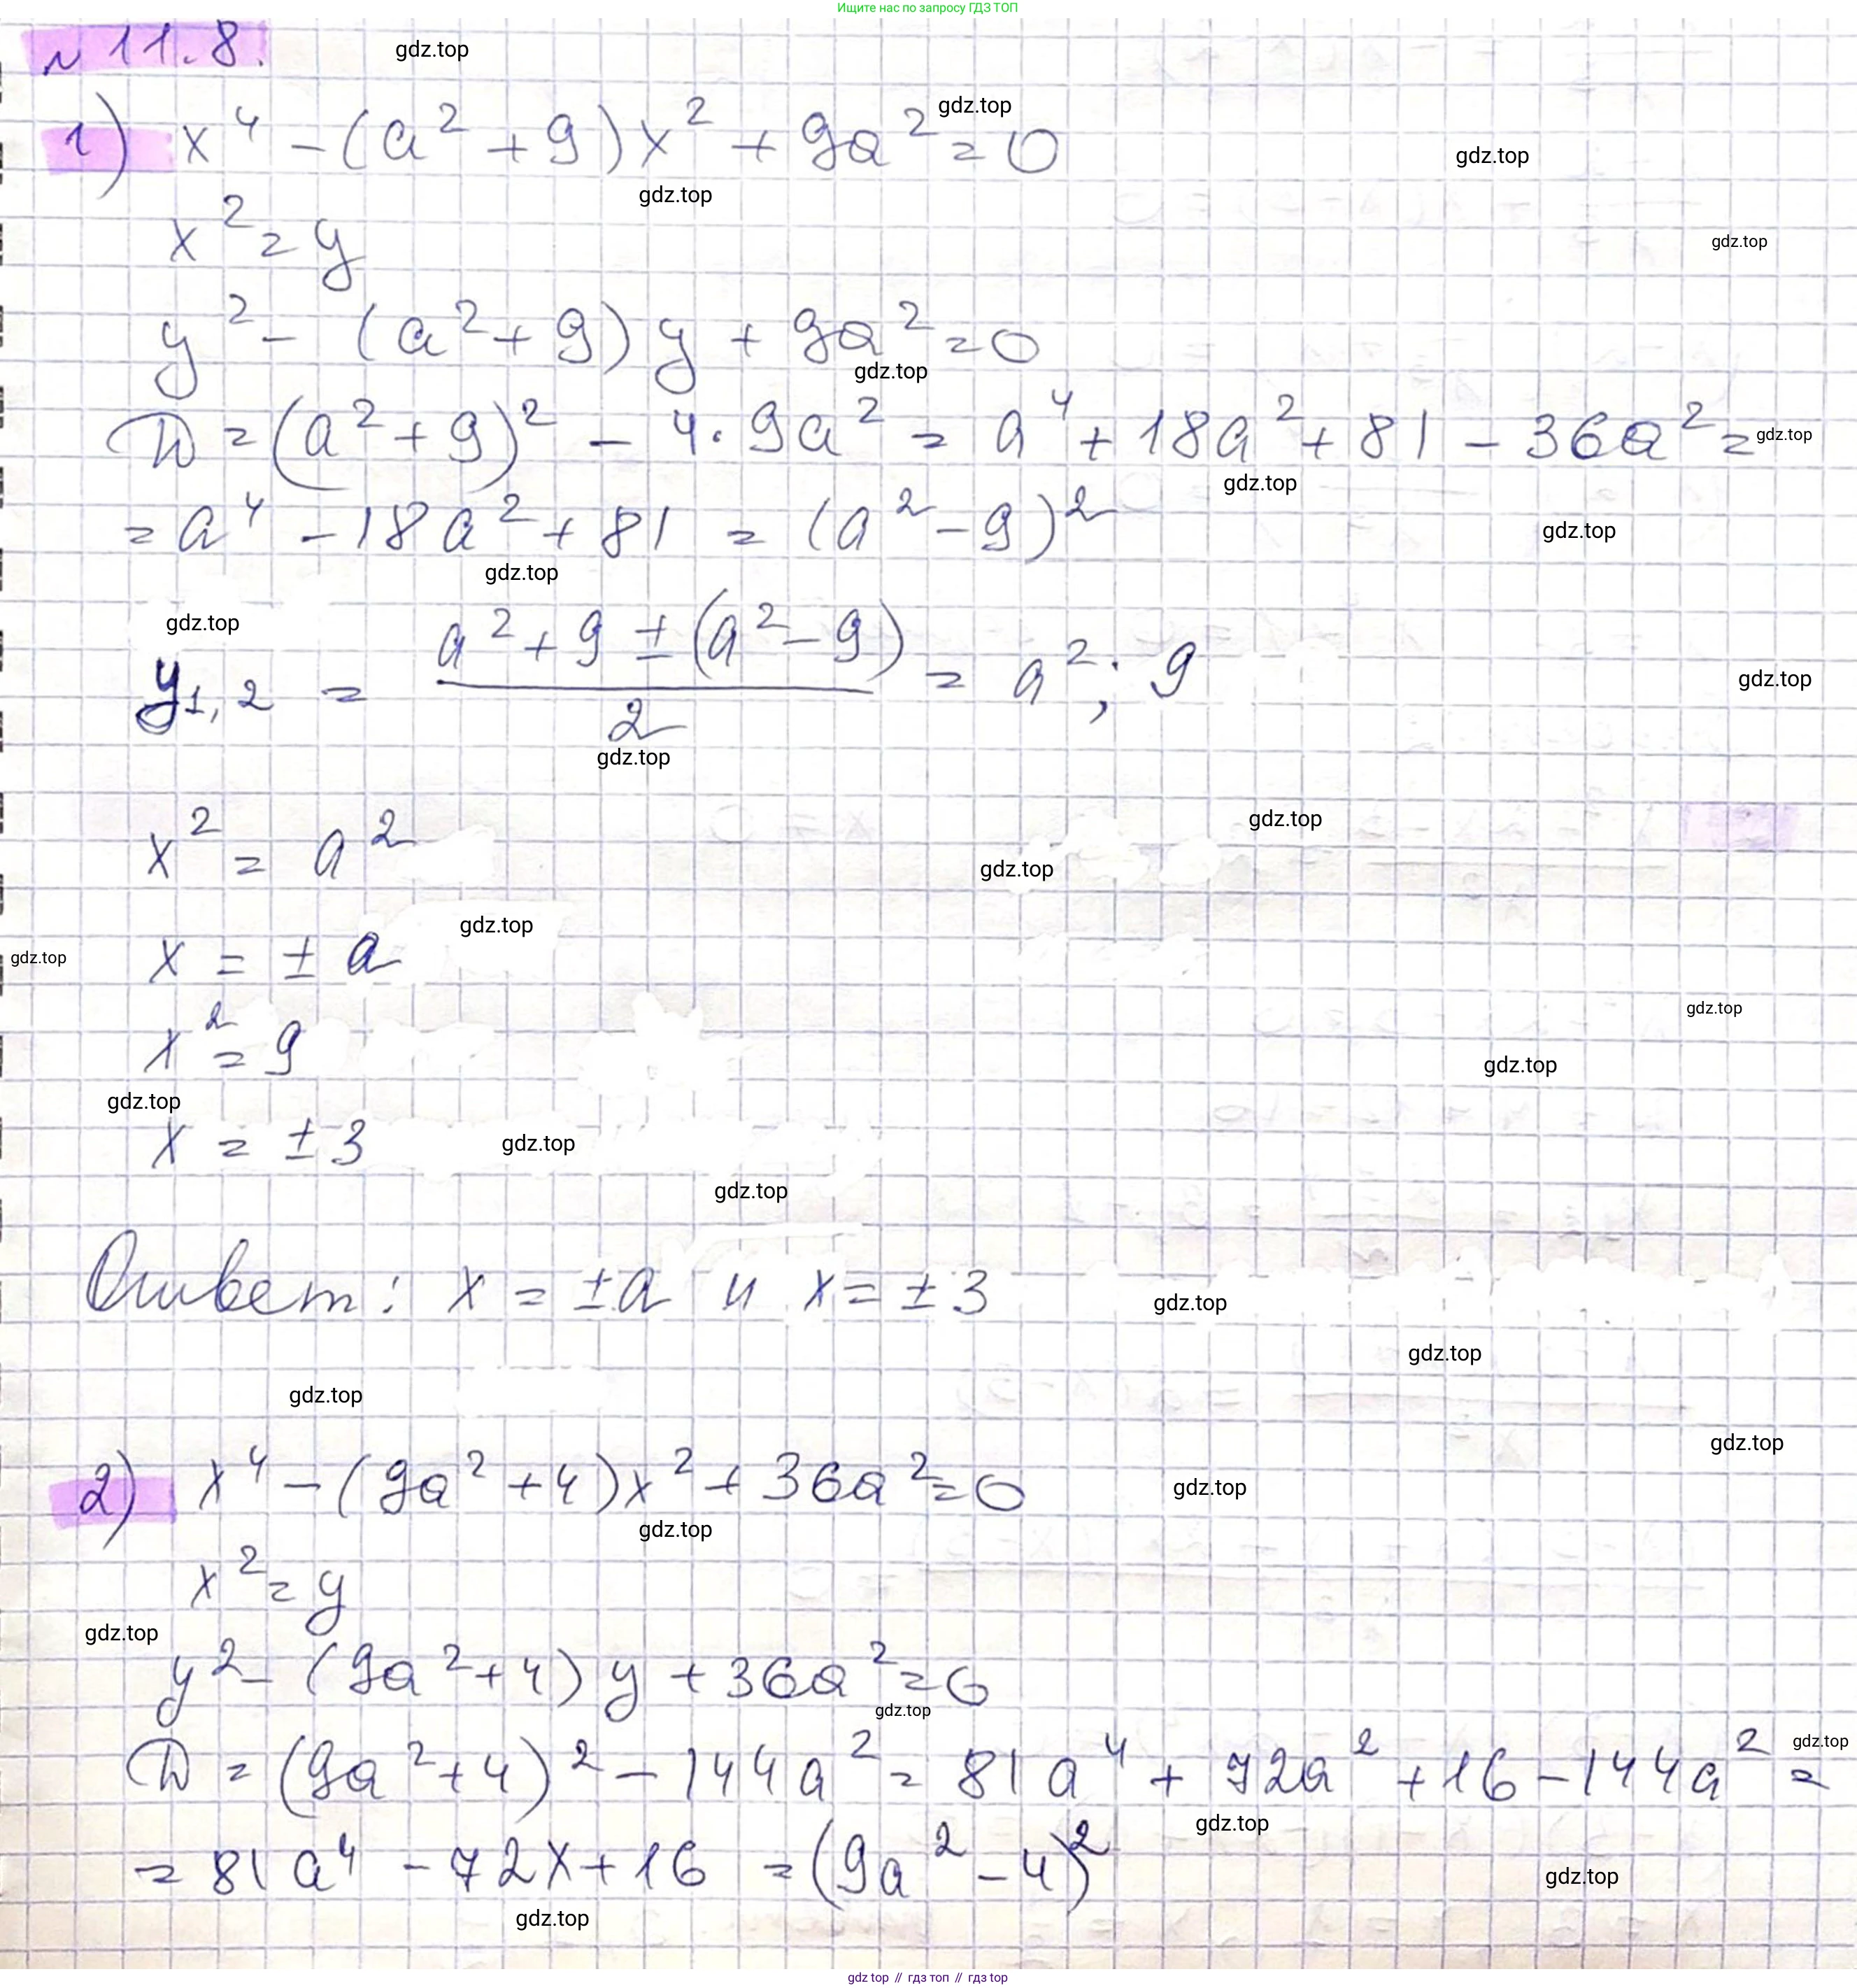 Ищите нас по запросу ГДЗ ТОП
N 11.8.
gdz.top
1) x⁴ - (a² + 9)x² + 9a² = 0
gdz.top
gdz.top
gdz.top
x² = y
gdz.top
y² - (a² + 9) y + 9a² = 0
gdz.top
D = (a² + 9)² - 4 · 9a² = a⁴ + 18a² + 81 - 36a² =
gdz.top
gdz.top
= a⁴ - 18a² + 81 = (a² - 9)²
gdz.top
gdz.top
gdz.top
y₁,₂ = (a² + 9 ± (a² - 9)) / 2 = a²; 9
gdz.top
gdz.top
gdz.top
x² = a²
gdz.top
gdz.top
x = ± a
gdz.top
gdz.top
x² = 9
gdz.top
gdz.top
x = ± 3
gdz.top
gdz.top
Ответ: x = ± a и x = ± 3
gdz.top
gdz.top
gdz.top
gdz.top
2) x⁴ - (9a² + 4)x² + 36a² = 0
gdz.top
gdz.top
x² = y
gdz.top
y² - (9a² + 4) y + 36a² = 0
gdz.top
D = (9a² + 4)² - 144a² = 81a⁴ + 72a² + 16 - 144a² =
gdz.top
gdz.top
= 81a⁴ - 72x + 16 = (9a² - 4)²
gdz.top
gdz.top
gdz top // гдз топ // gdz top